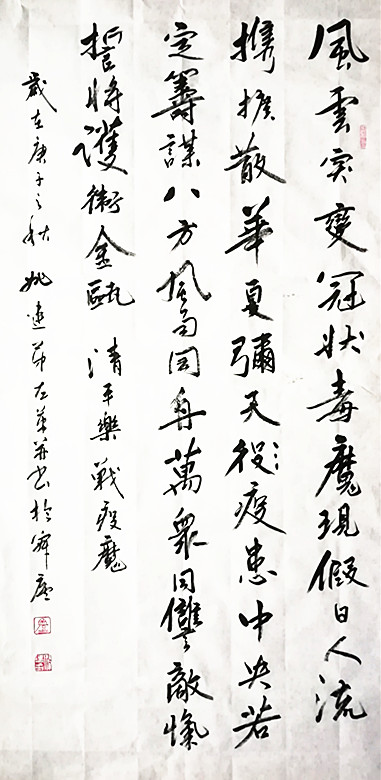 風雲突變冠狀毒魔現假日人流
携擴散華夏彌天役疫患中央若
定籌謀八方風雨同舟萬衆同讎敵愾
誓將護衛金甌 清平樂 戰疫魔
歲在庚子之秋 姚遠 左 并書於舜